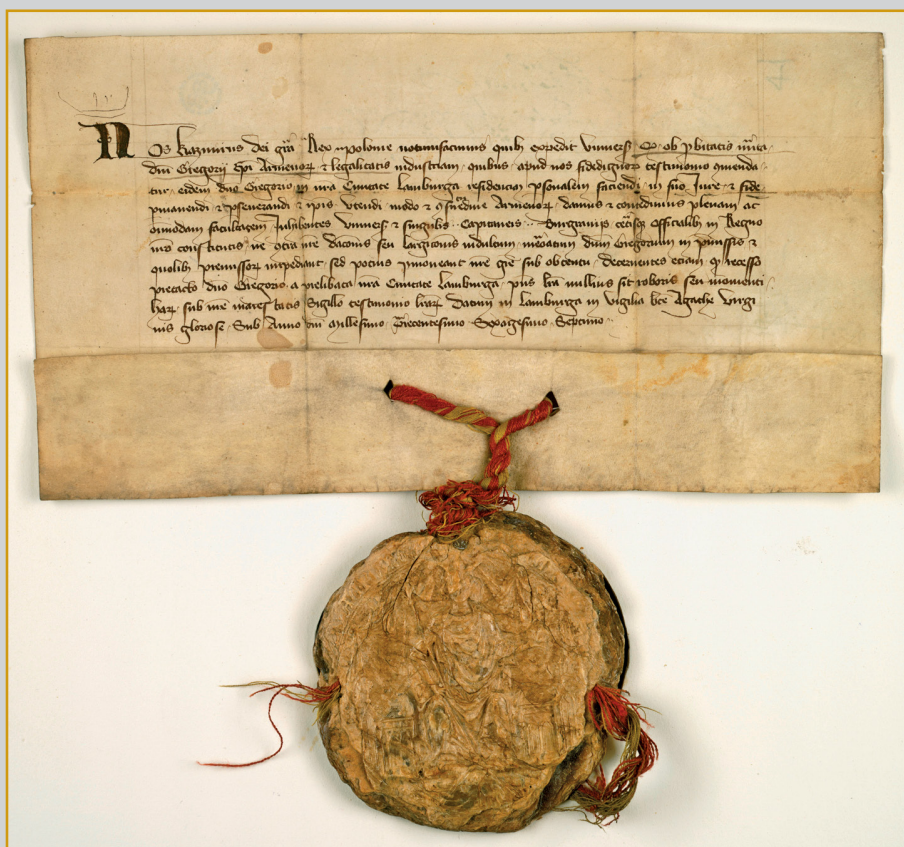 Nos Kazimirus dei gra Rex Polonie notumfacimus quibz expedit Vniuers Qz ob pbitatis mita
dni Gregorij Epi Armenoꝝ & legalitatis industriam quibus apud nos fidedignoꝝ testimonio gmenda
tur eidem dno Gregorio in nra Ciuitate Lamburga residenciam psonalem faciendi in suo Jure & fide
pmanendi & pseuerandi & ipis vtendi modo & gswetudine Armenoꝝ damus & concedimus plenam ac
omnimodam facultatem Inhibentes Vniuers & singulis Capitaneis Burgrauijs cetisqz Officialibz in Regno
nro constitutis ne contra nre dacionis seu largicionis indultum dnm Gregorium in pmissis &
quolibz premissoꝝ impediant sed pocius pmoueant nre gre sub obtentu decernentes eciam qz recesso
dno Gregorio a prelibata nra Ciuitate Lamburga pns lra nullius sit roboris seu momenti
harꝝ sub nre maiestatis Sigillo testimonio lrarꝝ Datum in Lamburga in vigilia bte Agathe Virgi
nis gloriose Sub Anno dni Millesimo Trecentesimo Sexagesimo Septimo